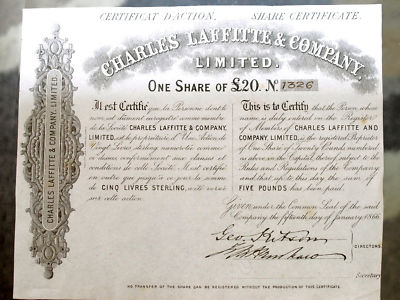 CERTIFICAT D'ACTION. SHARE CERTIFICATE.
CHARLES LAFFITTE & COMPANY,
LIMITED.
ONE SHARE OF £20. No. 1326
CHARLES LAFFITTE & COMPANY, LIMITED.
Il est Certifié que la Personne dont le
nom est dûment enregistré comme membre
de la Société CHARLES LAFFITTE & COMPANY,
LIMITED, est le propriétaire d'Une Action de
Vingt Livres sterling numerotée comme
ci dessus conformément aux clauses et
conditions de cette Société. Il est Certifié
en outre que jusqu'à ce jour la somme
de CINQ LIVRES STERLING, a été versée
sur cette action.
This is to Certify that the Person whose
name is duly entered on the Register
of Members of CHARLES LAFFITTE AND
COMPANY, LIMITED, is the registered Proprietor
of One Share of Twenty Pounds numbered
as above in the Capital thereof subject to the
Rules and Regulations of the Company
and that up to this day the sum of
FIVE POUNDS has been paid.
Given under the Common Seal of the said
Company, the fifteenth day of January 1866.
Geo. Hitson
DIRECTORS.
Secretary.
NO TRANSFER OF THE SHARE CAN BE REGISTERED WITHOUT THE PRODUCTION OF THIS CERTIFICATE.